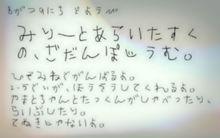 ６がつ９にち どようび
みりーとあらいたすく
の、ざだんぽいうむ。
ひざみねでがんばるよ。
２-５でいが、ほうそうしてくれるよ。
やまとちゃんとたっくんがしゃべったり、
らいぶしたり。
てぬきじゃないよ。